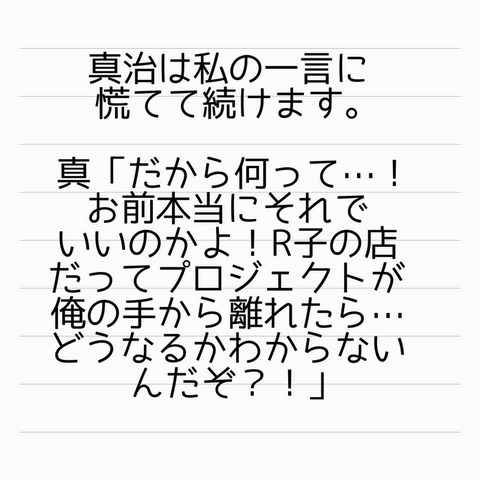 真治は私の一言に
慌てて続けます。
真「だから何って…！
お前本当にそれで
いいのかよ！R子の店
だってプロジェクトが
俺の手から離れたら…
どうなるかわからない
んだぞ？！」